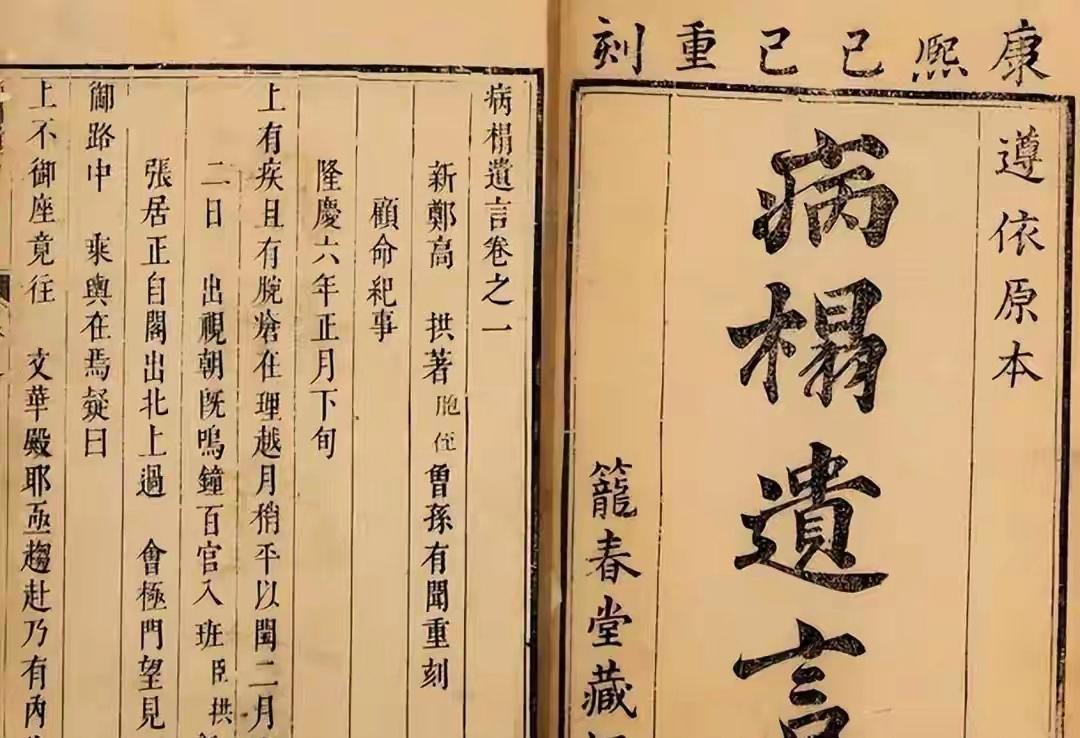 康熙己巳重刻
遵依原本
病榻遺言
籠春堂藏
病榻遺言卷之一
新鄭高 拱著 胞侄曾孫有聞重刻
顧命紀事
隆慶六年正月下旬
上有疾且有腕瘡在理越月稍平以閏二月
二日 出視朝既鳴鐘百官入班臣拱
張居正自閣出北上過 會極門望見
御路中 乘輿在焉疑曰
上不御座竟往 文華殿耶亟趨赴乃有內